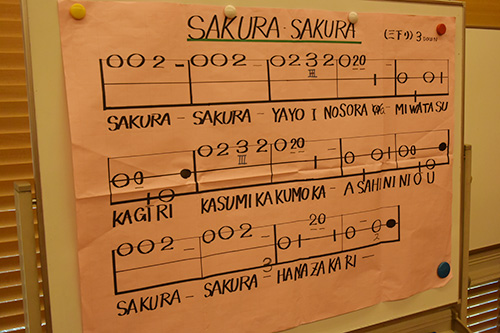 SAKURA · SAKURA (三下り) 3
002 - 002 - 0232 020 - 1 0 01
III
SAKURA - SAKURA - YAYO I NOSORA - MIWATASU
00 10 0232 020 - 1 01 00 10
III
KAGIRI KASUMIKAKUMOKA - ASAHI NI NIO U
002 - 002 - 0 1 20 1 0 - 0
3
SAKURA - SAKURA - HANAZAKARI -